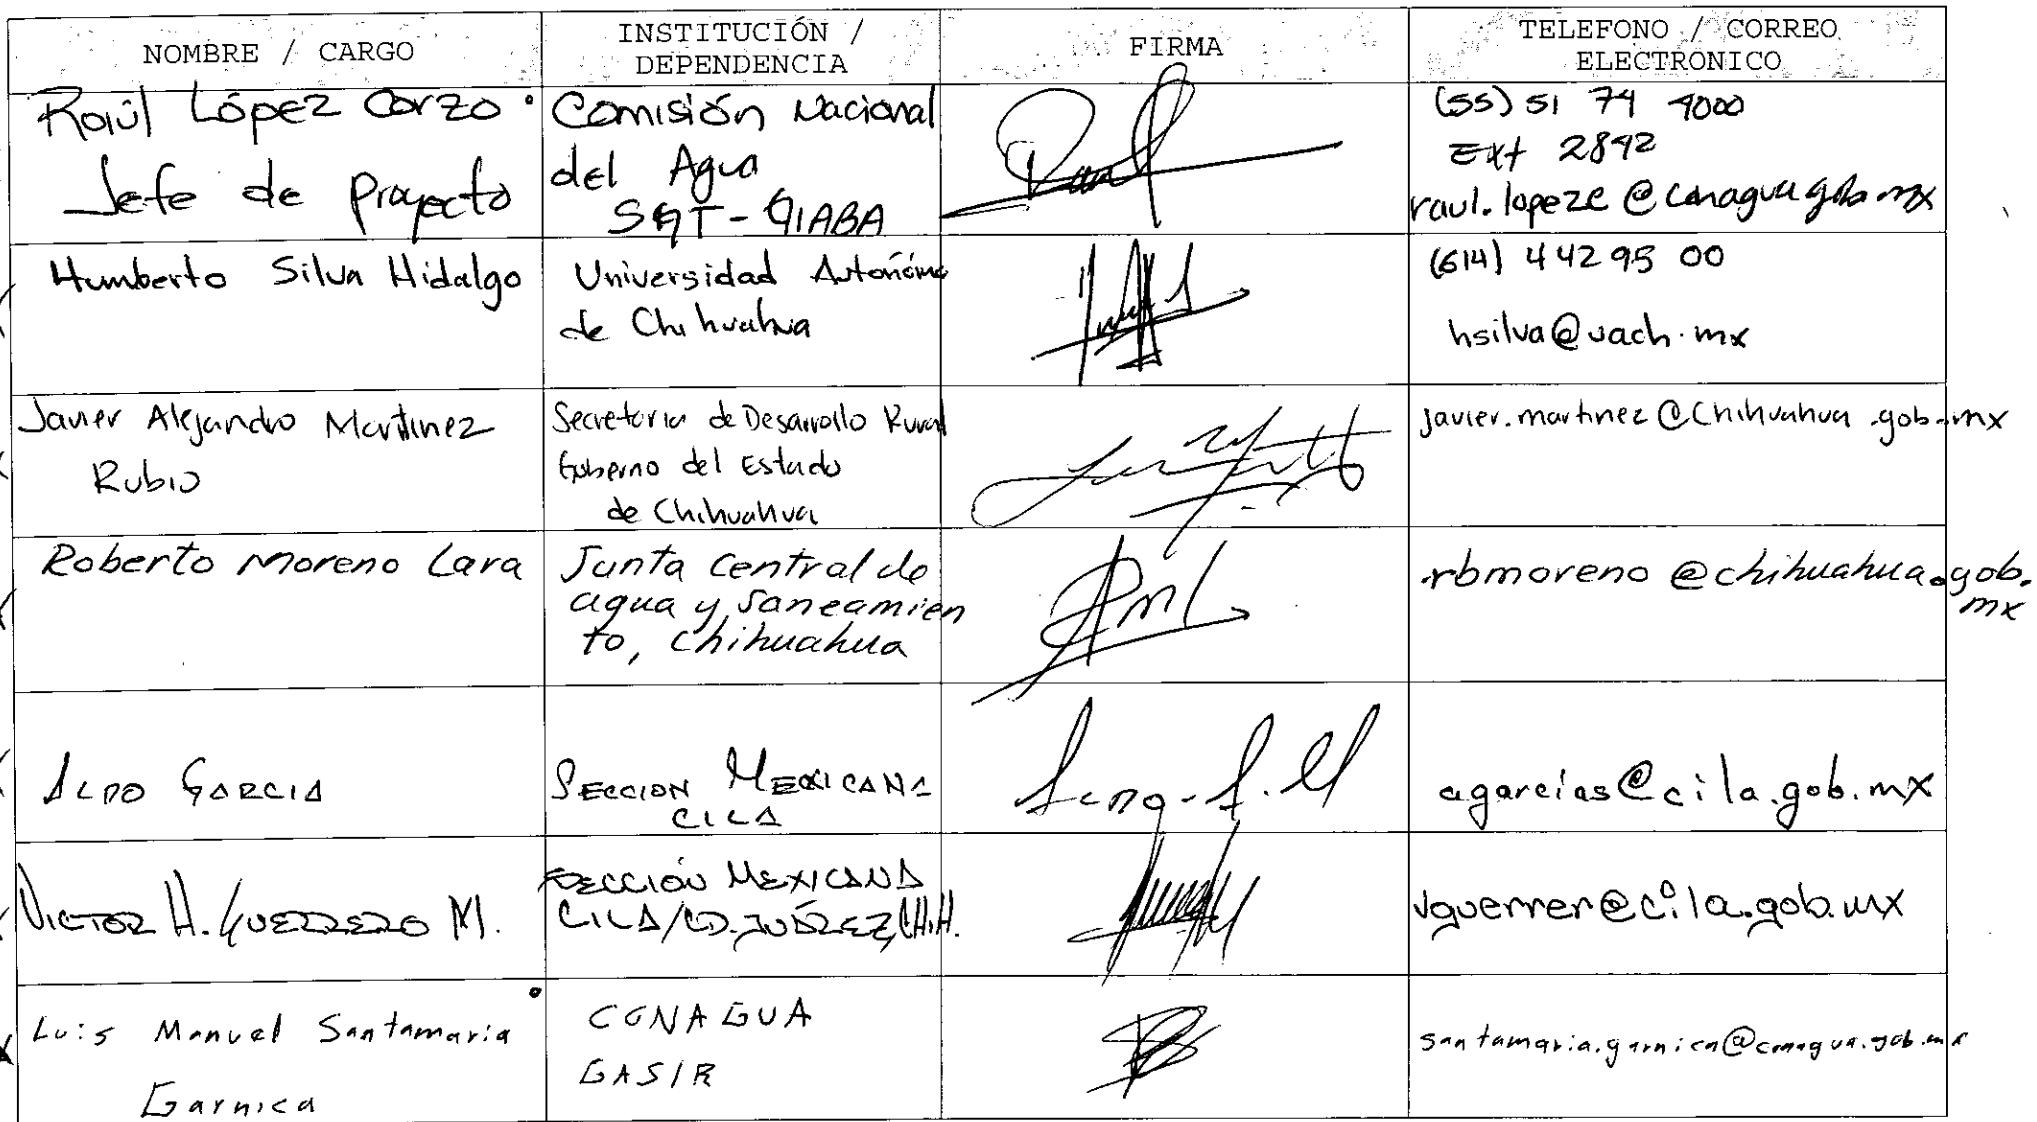 NOMBRE / CARGO
INSTITUCIÓN /
DEPENDENCIA
FIRMA
TELEFONO / CORREO
ELECTRONICO
Raúl López Corzo
Jefe de Proyecto
Comisión Nacional
del Agua
SGT - GIABA
(55) 51 74 4000
Ext 2892
raul.lopezc@conagua.gob.mx
Humberto Silva Hidalgo
Universidad Autónoma
de Chihuahua
(614) 442 95 00
hsilva@uach.mx
Javier Alejandro Martinez
Rubio
Secretaria de Desarrollo Rural
Gobierno del Estado
de Chihuahua
javier.martinez@Chihuahua.gob.mx
Roberto Moreno Lara
Junta Central de
agua y Saneamien
to, Chihuahua
rbmoreno@chihuahua.gob.
mx
ALDO GARCIA
SECCION MEXICANA
CILA
agarcias@cila.gob.mx
VICTOR H. GUERRERO M.
SECCIÓN MEXICANA
CILA/CD. JUÁREZ, CHIH.
vguerrer@cila.gob.mx
Luis Manuel Santamaria
Garnica
CONAGUA
GASIR
santamaria.garnica@conagua.gob.mx